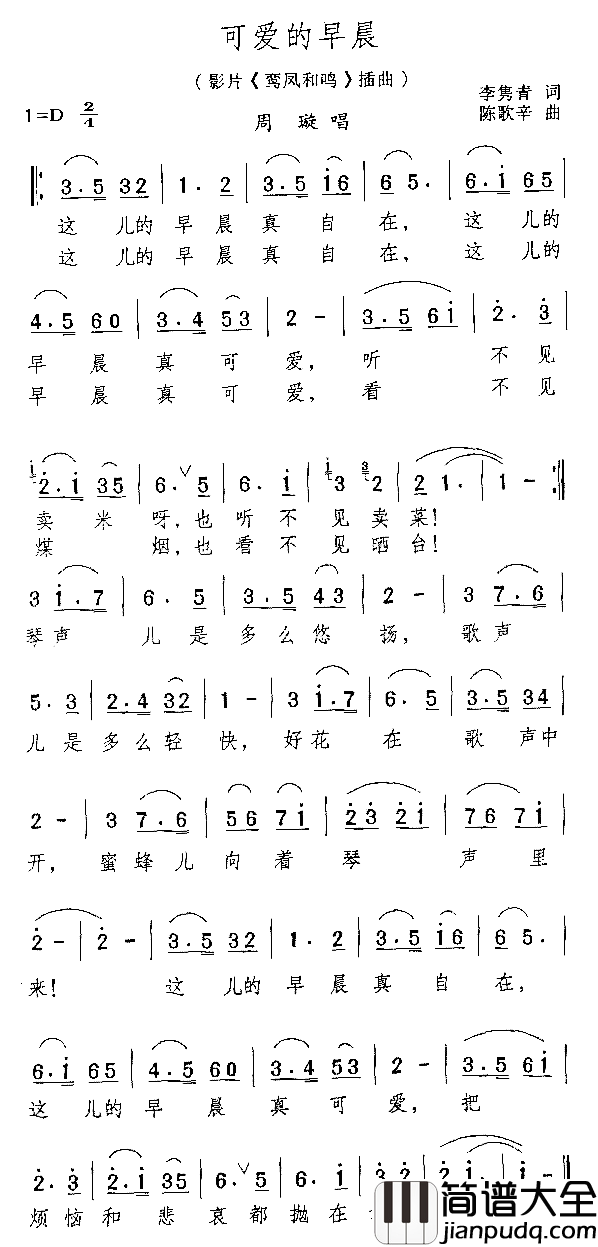 可爱的早晨
（影片《鸾凤和鸣》插曲）
1=D 2/4
周 璇唱
李隽青 词
陈歌辛 曲
3.5 32 | 1.2 | 3.5 i6 | 65. | 6.i 65 |
这 儿的早晨真 自 在，这 儿的
这 儿的早晨真 自 在，这 儿的
4.5 60 | 3.4 53 | 2 - | 3.5 6i | 2.3 |
早 晨 真 可 爱，听 不见
早 晨 真 可 爱，看 不见
2.i 35 | 6.5 ∨ | 6.i | 3 2 | 2 1. | 1 - :||
卖 米 呀，也 听 不 见卖菜！
煤 烟，也 看 不 见晒台！
3 i.7 | 6.5 | 3.5 43 | 2 - | 3 7.6 |
琴声 儿是多么悠 扬，歌声
5.3 | 2.4 32 | 1 - | 3 i.7 | 6.5 | 3.5 34 |
儿是多么轻 快，好花 在 歌 声中
2 - | 3 7.6 | 56 7i | 23 2i | 76 7i |
开，蜜 蜂 儿 向 着 琴 声 里
2 - | 2 - | 3.5 32 | 1.2 | 3.5 i6 | 65. |
来！ 这 儿的 早 晨真 自 在，
6.i 65 | 4.5 60 | 3.4 53 | 2 - | 3.5 6i |
这 儿的 早 晨 真 可 爱，把
2.3 | 2.i 35 | 6.5 ∨ | 6.i
烦 恼 和 悲 哀 都 抛 在
简谱大全
jianpudq.com